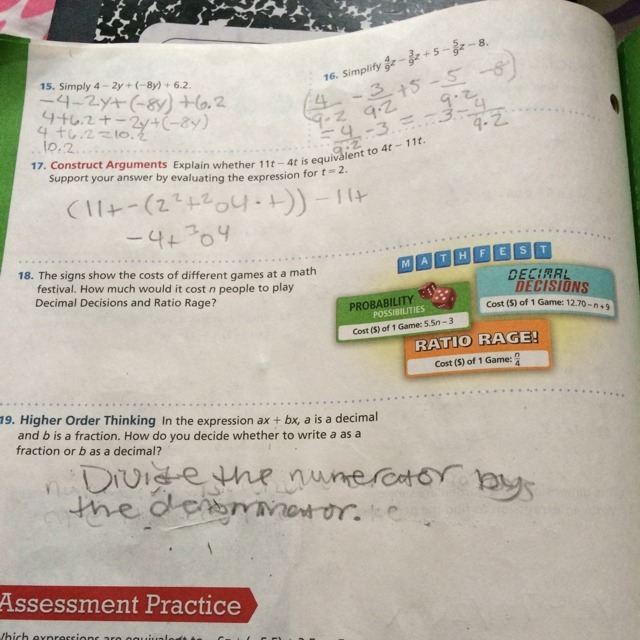 15. Simply 4 – 2y + (–8y) + 6.2.
-4-2y+(-8y)+6.2
4+6.2+-2y+(-8y)
4+6.2=10.2
10.2
16. Simplify 4/9z – 3/9z + 5 – 5/9z – 8.
(4/9.2 - 3/9.2 +5 - 5/9.2 -8)
= 4/9.2 -3 = -3 - 4/9.2
17. Construct Arguments Explain whether 11t – 4t is equivalent to 4t – 11t.
Support your answer by evaluating the expression for t = 2.
18. The signs show the costs of different games at a math
festival. How much would it cost n people to play
Decimal Decisions and Ratio Rage?
MATHFEST
PROBABILITY
POSSIBILITIES
Cost ($) of 1 Game: 5.5n – 3
DECIMAL
DECISIONS
Cost ($) of 1 Game: 12.70 – n + 9
RATIO RAGE!
Cost ($) of 1 Game: n/4
19. Higher Order Thinking In the expression ax + bx, a is a decimal
and b is a fraction. How do you decide whether to write a as a
fraction or b as a decimal?
Divide the numerator by
the denominator.
Assessment Practice